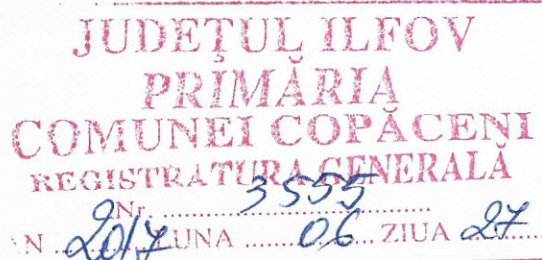 JUDEȚUL ILFOV
PRIMĂRIA
COMUNEI COPĂCENI
REGISTRATURA GENERALĂ
Nr. .......... 3555 ..........
N ... 2017 LUNA ....... 06 ... ZIUA 27 ...